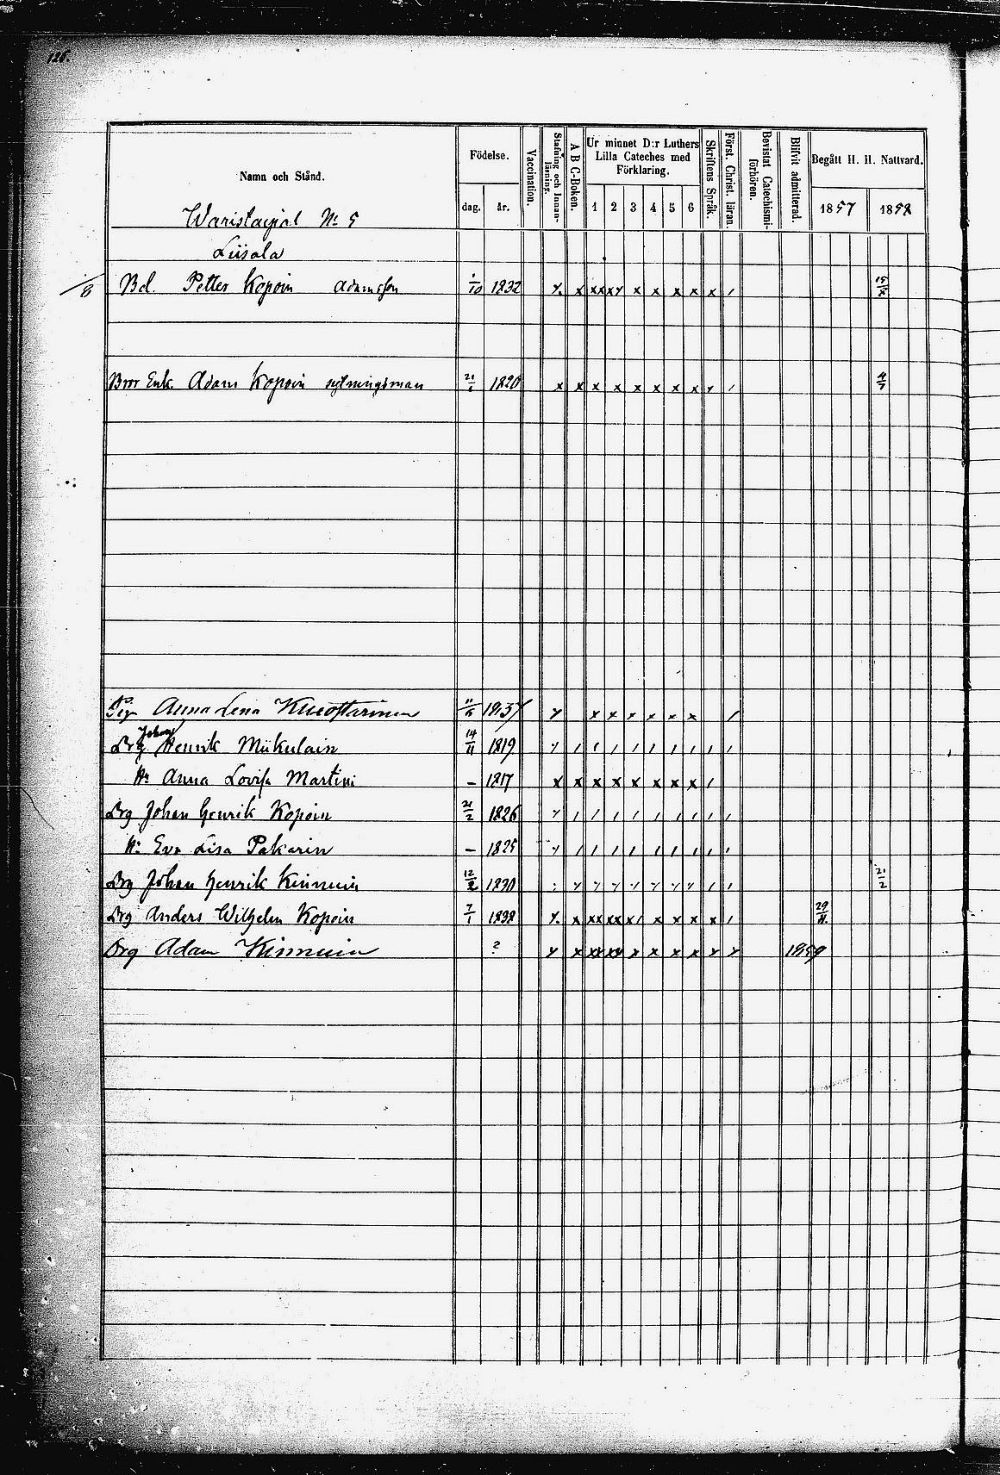 126.
Namn och Stånd.
Födelse.
dag. år.
Vaccination.
Stafning och Innanläsning.
A B C-Boken.
Ur minnet D:r Luthers Lilla Cateches med Förklaring.
1 2 3 4 5 6
Skriftens Språk.
Först. Christ. läran.
Bevistat Catechismiförhören.
Blifvit admitterad.
Begått H. H. Nattvard.
1857 1858
No 5
Liisala
8 Bd. Petter Kopoin Adamsson 1/10 1832 x x xx xy x x x x x /
Adam Kopoin sytningsman 21 1820 x x x x x x x x /
Pig Anna Lena 1837 x x x x x x /
Drg Johan Henrik Miikulain 14/11 1819 / / / / / / / / / /
H: Anna Lovisa Martin – 1817 x x x x x x x x /
Drg Johan Henrik Kopoin 21/2 1826 / / / / / / / / /
H: Eva Lisa Pakarin – 1825 / / / / / / / / /
Drg Johan Henrik Kinnuin 12 1830 / /
Drg Anders Wilhelm Kopoin 7/1 1838 x x xx xx x x x x x / 29
Drg Adam Kinnuin ? x x xx xx x x x x x x 1859